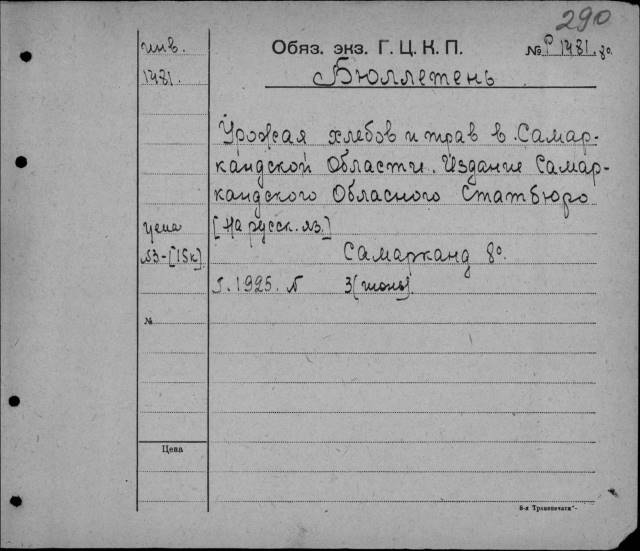 290
инв.
1481.
Обяз. экз. Г. Ц. К. П.
№ Р 1481. 8о.
Бюллетень
Урожая хлебов и трав в Самар-
кандской Области. Издание Самар-
кандского Обласного Статбюро
[На русск. яз.]
Цена
№3-[15к]
Самарканд 8о.
г. 1925. № 3 (июнь).
№
Цена
8-я Транспечати